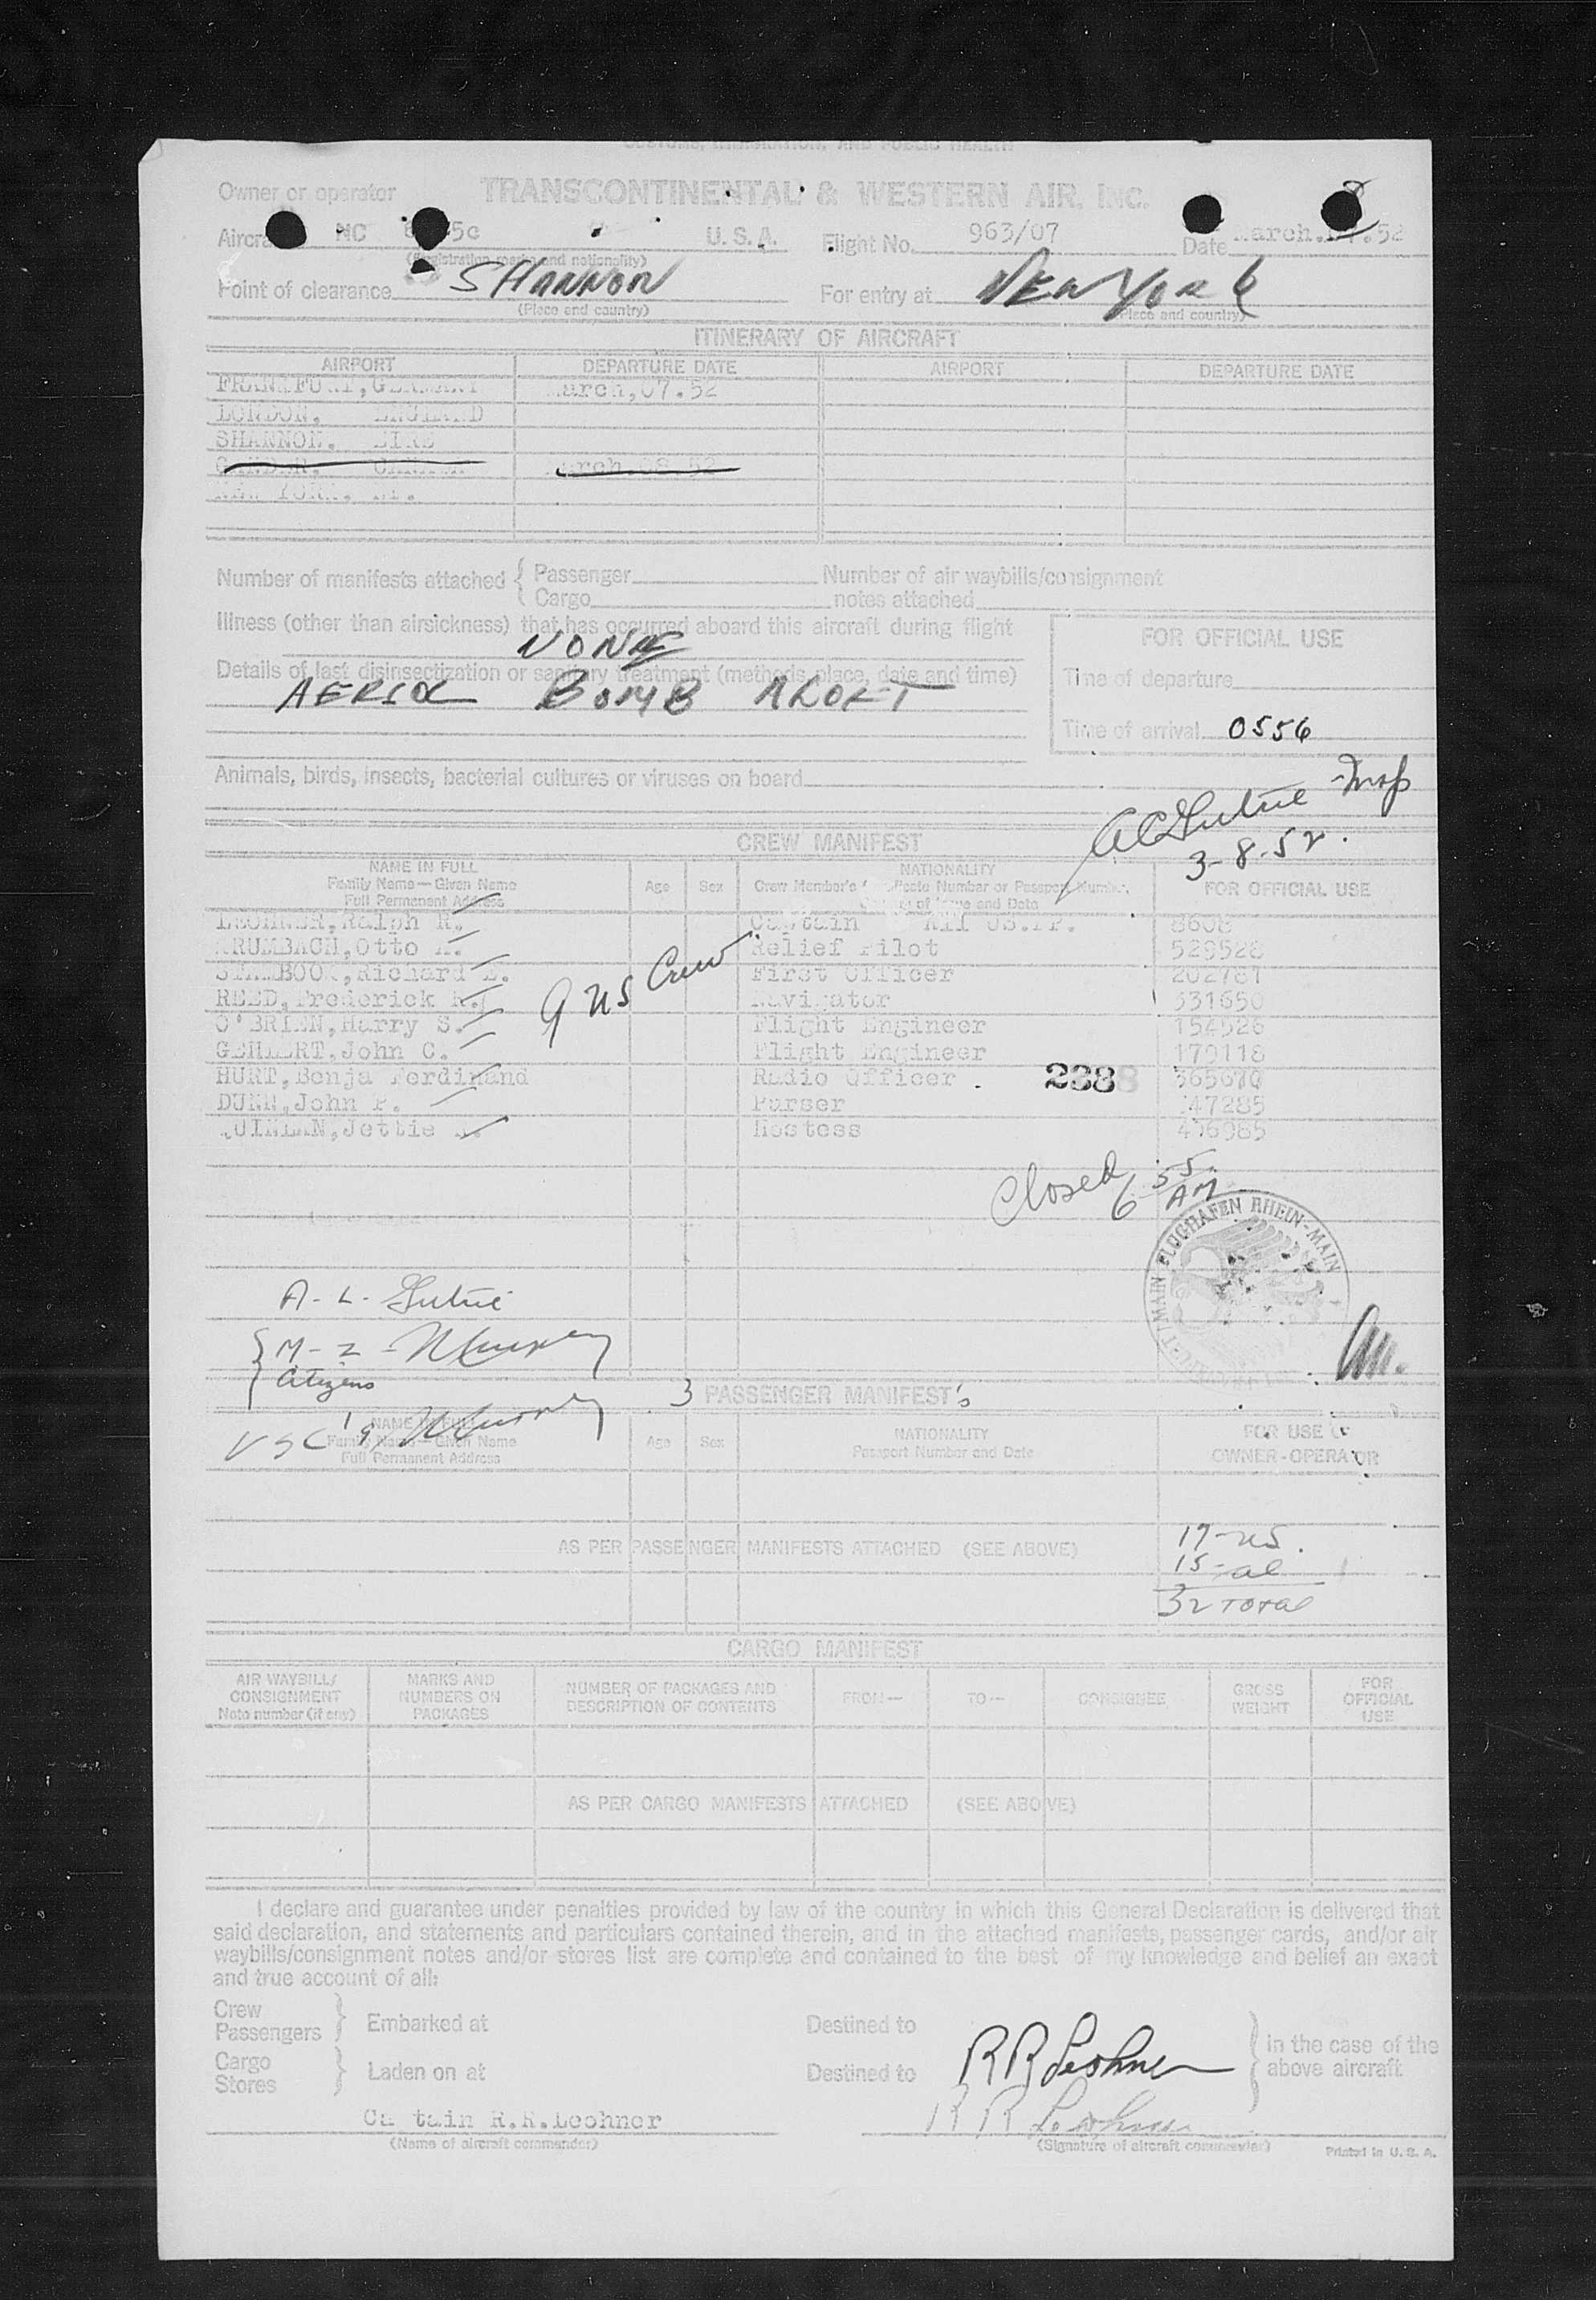 CUSTOMS, IMMIGRATION, AND PUBLIC HEALTH
Owner or operator TRANSCONTINENTAL & WESTERN AIR, INC.
NC 5c U. S. A. Flight No. 963/07 Date March 52
(Registration marks and nationality)
Point of clearance SHANNON For entry at NEW YORK
(Place and country) (Place and country)
ITINERARY OF AIRCRAFT
AIRPORT DEPARTURE DATE AIRPORT DEPARTURE DATE
FRANKFURT, GERMANY March,07.52
LONDON, ENGLAND
SHANNON, EIRE
GANDER, CANADA March.08.52
NEW YORK. NY.
Number of manifests attached { Passenger Number of air waybills/consignment
Cargo notes attached
Illness (other than airsickness) that has occurred aboard this aircraft during flight
NONE
FOR OFFICIAL USE
Details of last disinsectization or sanitary treatment (methods, place, date and time)
Time of departure
BOMB ALOFT
Time of arrival 0556
Animals, birds, insects, bacterial cultures or viruses on board
Insp
3-8-52.
CREW MANIFEST
NAME IN FULL
Family Name—Given Name
Full Permanent Address
Age Sex
NATIONALITY
Crew Member's Certificate Number or Passport Number,
of Issue and Date
FOR OFFICIAL USE
LEOHNER,Ralph R. Captain All US.PP. 8608
KRUMBACH,Otto Relief Pilot 529528
Richard First Officer 202781
REED,Frederick R. Navigator 331650
O'BRIEN,Harry S. Flight Engineer 154526
GEHLERT,John C. Flight Engineer 179118
HURT,Benja Ferdinand Radio Officer 365070
DUNN,John P. Purser 47285
QUINLAN,Jettie Hostess 496985
9 US Crew
2388
Closed 6 55 AM
FLUGHAFEN RHEIN-MAIN
A - L - Gutrie
M - Z - Murphy
Citizens
3 PASSENGER MANIFEST's
NAME IN FULL
Family Name—Given Name
Full Permanent Address
Age Sex
NATIONALITY
Passport Number and Date
FOR USE OF
OWNER-OPERATOR
17-US.
AS PER PASSENGER MANIFESTS ATTACHED (SEE ABOVE)
15-al
32 Total
CARGO MANIFEST
AIR WAYBILL/
CONSIGNMENT
Note number (if any)
MARKS AND
NUMBERS ON
PACKAGES
NUMBER OF PACKAGES AND
DESCRIPTION OF CONTENTS
FROM—
TO—
CONSIGNEE
GROSS
WEIGHT
FOR
OFFICIAL
USE
AS PER CARGO MANIFESTS ATTACHED (SEE ABOVE)
I declare and guarantee under penalties provided by law of the country in which this General Declaration is delivered that
said declaration, and statements and particulars contained therein, and in the attached manifests, passenger cards, and/or air
waybills/consignment notes and/or stores list are complete and contained to the best of my knowledge and belief an exact
and true account of all:
Crew
Passengers } Embarked at Destined to
Cargo
Stores } Laden on at Destined to
in the case of the
above aircraft
R R Leohner
Captain R.R.Leohner R R Leohner
(Name of aircraft commander) (Signature of aircraft commander) Printed in U. S. A.